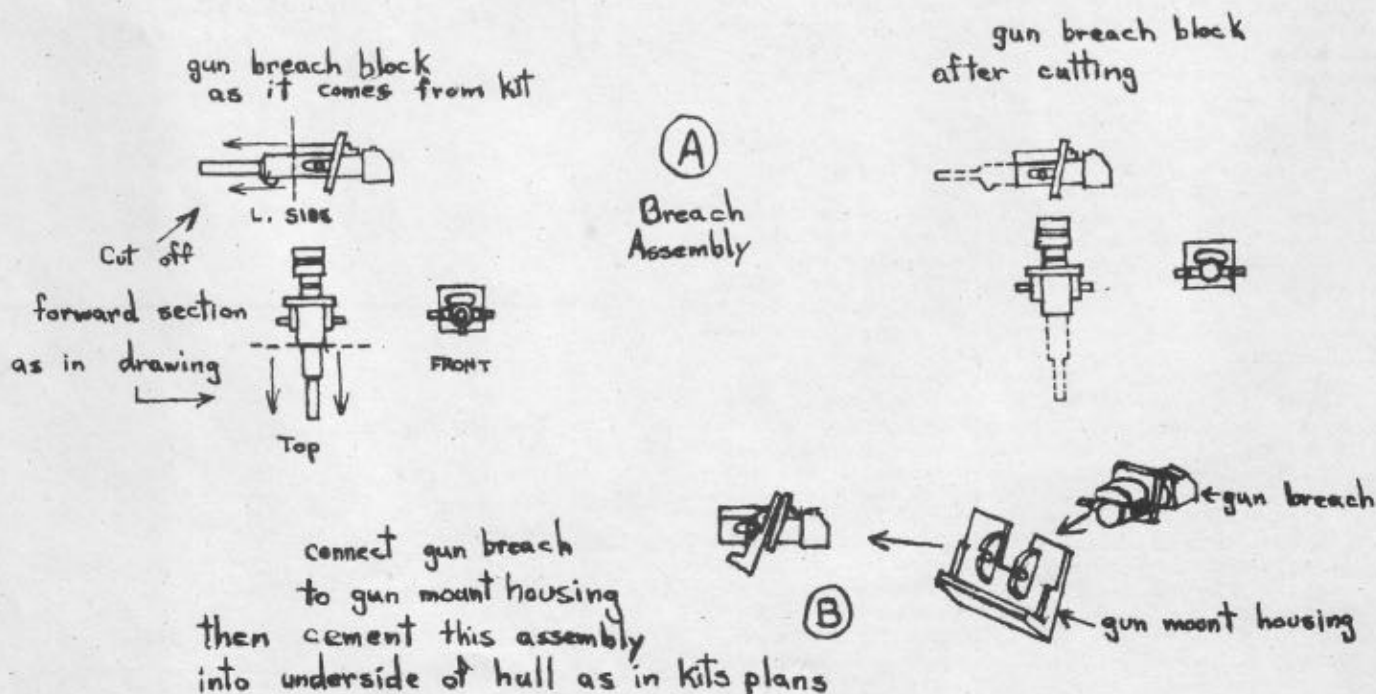 gun breach block
as it comes from kit
L. SIDE
Cut off
forward section
as in drawing
FRONT
Top
A
Breach
Assembly
gun breach block
after cutting
connect gun breach
to gun mount housing
then cement this assembly
into underside of hull as in kits plans
B
gun breach
gun mount housing